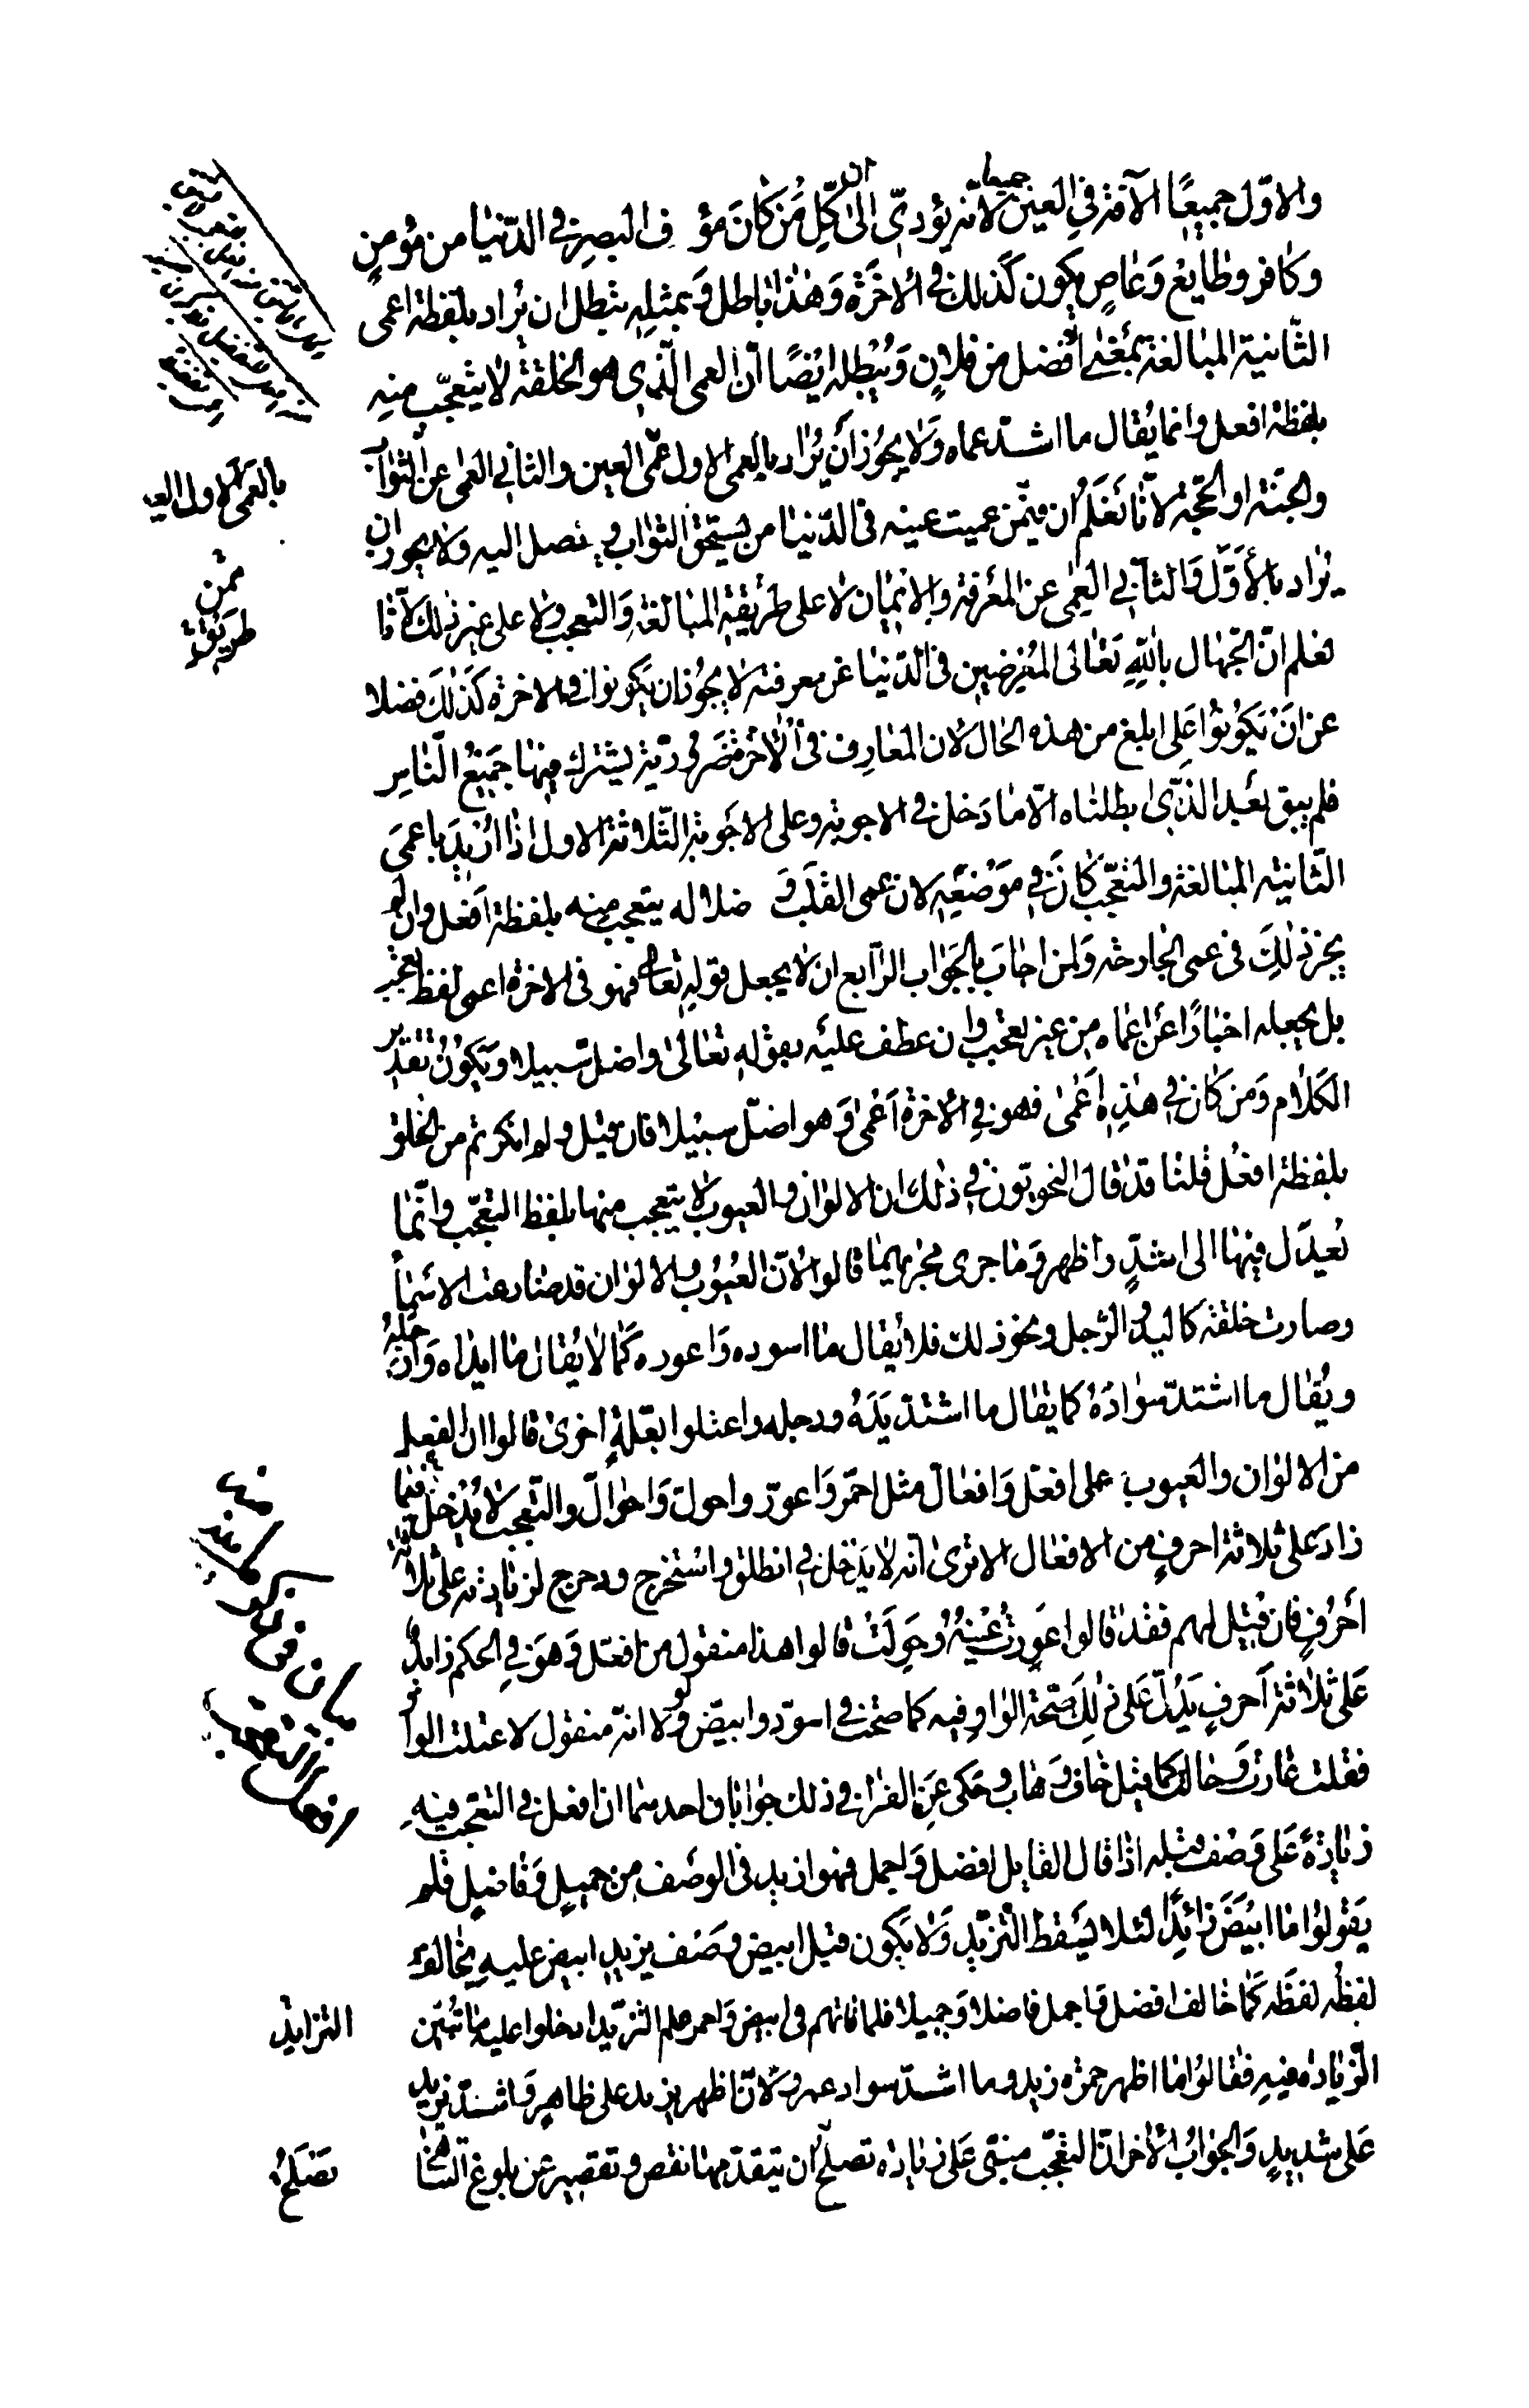 والاوّل جميعًا الآفة في العين جميعا لانّه يؤدّى الى ان كلّ مَن كانَ مؤف البصر في الدّنيا من مؤمنٍ
وكافر وطايع وَعاصٍ يكون كذلك في الاخرَة وَهٰذا باطل وَبمثلِهِ يبطل ان يُراد بلفظة اعمى
الثّانية المبالغة بمَعنٰى أفضل من فلانٍ وَيُبْطله ايضًا انّ العمى الّذى هو الخلقة لا يتعجّب منه
بلفظة افعل وانما يُقال ما اشدّ عماه وَلا يجُوز أن يُراد بالعمى الاول عمى العين والثانى العمى عن الثواب
والجنّة او الحجّة لانّا نعْلَمُ ان فيمَن عميت عينه فى الدّنيا من يستحق الثواب ويصل اليه وَلا يجوز ان
يُراد بالأوّل والثانى العمى عن المعرفة والايمان لا على طريقة المبالغة وَالتعجب ولا على غير ذلك لانّا
نعلم انّ الجهّال باللهِ تعالى المُعرضين فى الدّنيا عن معرفته لا يجُوز ان يكونوا فى الاخرة كذلك فضلا
عن انْ يَكوُنوُا عَلى ابلغ من هذه الحال لان المعارف فى الاخرة ضَروريّة يشترك فيها جَميعُ النّاس
فلم يبق بَعد الّذى بطلناه الّا ما دَخل فى الاجوبة وعلى الاجَوبة الثّلاثة الاول اذا اُريدَ باعمى
الثّانية المبالغة والتعجّب كانَ فى مَوْضعِه لان عمى القلب وَضلاله يتعجب منه بلفظة اَفعل وان لم
يجز ذلِكَ فى عمى الجارحة وَلمن اجاب بالجَواب الرّابع ان لا يجعل قوله تعالى فهو فى الاخرة اعمى لفظ تعجّب
بل يجعله اخبارًا عَن عماه من غير تعجب وان عطف عليه بقولهِ تعالى واضل سبيلا وَيكوُنُ تقدير
الكَلام وَمن كان فى هٰذِه أعْمٰى فهو فى الاخرة أعْمٰى وَهو اضلّ سبيلا فان قيل ولم انكرتم من الخلق
بلفظة افعل قلنا قد قال النحويون فى ذلك ان الالوان والعيوب لا يتعجب منها بلفظ التعجّب وانّما
يُعدَل فيها الى اشدّ واظهر وَما جرى مجريهما قالوا لانّ العُيوُب والالوان قد ضارعت الاسماءَ
وصارت خلقة كاليد والرّجل ونحو ذلك فلا يُقال ما اسوده وَاعوره كما لا يُقال ما ايداه وَارجله
ويُقال ما اشتدّ سَوٰادَهُ كما يقال ما اشتدّ يَدَهُ ورجله واعتلوا بعّلةٍ اخرىٰ قالوا ان الفعل
من الالوان والعيوب على افعلّ وَافعالّ مثل احمرّ وَاعورّ واحولّ وَاحوالّ والتعجب لا يُدْخِل فيما
زادَ على ثلاثة احرفٍ من الافعال الا ترىٰ انّه لا يَدخل فى انطلق واسْتخرج ودحرج لزيادته على ثلاثة
أحرُفٍ فان قيل لهم فقد قالوا عَورتْ عَيْنهُ وحَوِلَتْ قالوا هذا منقول من افعلّ وَهو فى الحكم زايد
عَلى ثلاثة اَحرفٍ يَدُلّ عَلى ذلِكَ صحّة الواو فيه كما صحّت فى اسودّ وابيضّ ولولا انّه منقول لاعتلت الواو
فقلت عٰارت وَحالت كما قيل خاف وَهاب وحكى عن الفرّا فى ذلك جوابان احدهما ان افعل فى التعجب فيه
زيادةٌ عَلى وَصْف قبله اذا قال القايل افضل وَاجمل فهو ازيد فى الوصْف من جميلٍ وَفاضلٍ فلم
يَقولوُا ما ابْيَضَ زيدًا لئلّا يَسْقط التّزيّد وَلا يكون قبل ابيض وصَف يزيد ابيض عليه يخالف
لفظه لفظَه كما خالف افضل واجمل فاضلا وَجميلا فلما فاتهم فى ابيض وَاحمر علم التزيّد ادخلوا عليه ما تبين
الزّيادة فيه فقالوُا ما اظهر حمرَة زيد وما اشدّ سواد عمرو لانّ اظهر يزيد على ظاهرٍ وَاشدّ يزيد
عَلى شديدٍ وَالجوابُ الأخر انّ التعجّب مبنىّ عَلى زيادة تصلح ان يتقدّمها نقص وتقصير عن بلوغ التناهى
بالعَمى الاول العين
ممن
طريقة
التزايد
تصَلحُ